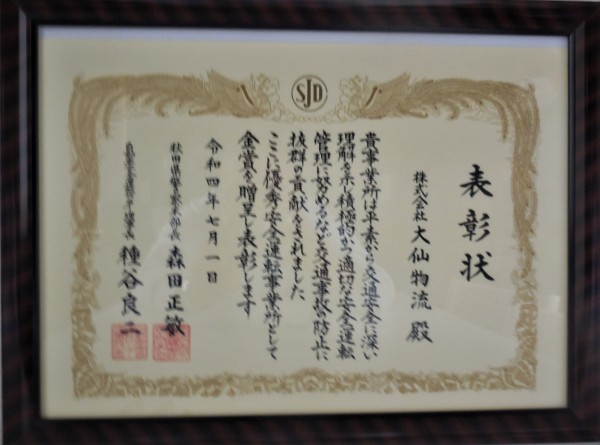 SJD
表彰状
株式会社 大仙物流 殿
貴事業所は平素から交通安全に深い
理解を示し積極的かつ適切な安全運転
管理に努めるなど交通事故の防止に
抜群の貢献をされました
ここに優秀安全運転事業所として
金賞を贈呈し表彰します
令和四年七月一日
秋田県警察本部長 森田正敏
自動車安全運転センター理事長 種谷良二